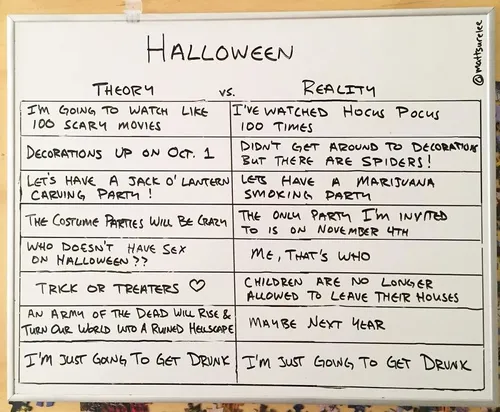 HALLOWEEN
@mattsurelee
THEORY vs. REALITY
I'M GOING TO WATCH LIKE
100 SCARY MOVIES
I'VE WATCHED HOCUS POCUS
100 TIMES
DECORATIONS UP ON OCT. 1
DIDN'T GET AROUND TO DECORATIONS
BUT THERE ARE SPIDERS!
LET'S HAVE A JACK O' LANTERN
CARVING PARTY!
LETS HAVE A MARIJUANA
SMOKING PARTY
THE COSTUME PARTIES WILL BE CRAZY
THE ONLY PARTY I'M INVITED
TO IS ON NOVEMBER 4TH
WHO DOESN'T HAVE SEX
ON HALLOWEEN??
ME, THAT'S WHO
TRICK OR TREATERS ♡
CHILDREN ARE NO LONGER
ALLOWED TO LEAVE THEIR HOUSES
AN ARMY OF THE DEAD WILL RISE &
TURN OUR WORLD INTO A RUINED HELLSCAPE
MAYBE NEXT YEAR
I'M JUST GOING TO GET DRUNK
I'M JUST GOING TO GET DRUNK